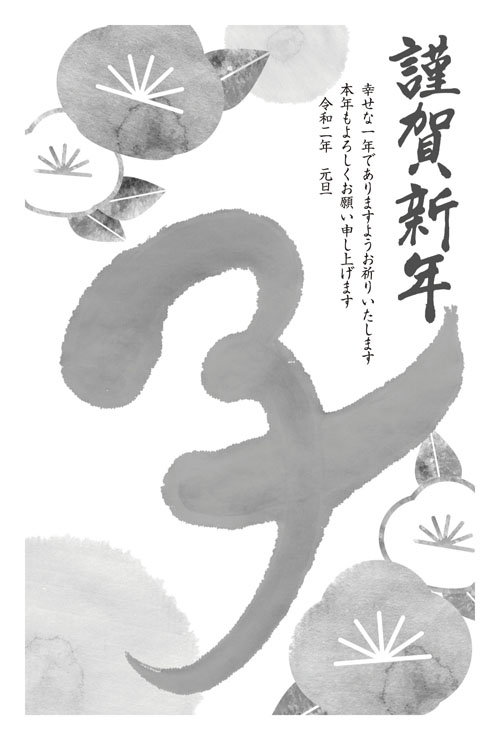 謹賀新年
幸せな一年でありますようお祈りいたします
本年もよろしくお願い申し上げます
令和二年　元旦
子